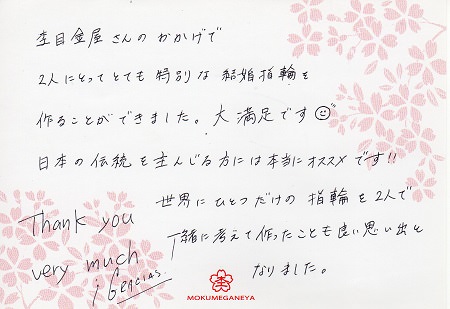 杢目金屋さんのおかげで
2人にとってとても特別な結婚指輪を
作ることができました。大満足です
日本の伝統を重んじる方には本当にオススメです!!
世界にひとつだけの指輪を2人で
一緒に考えて作ったことも良い思い出と
なりました。
Thank you
very much
¡Gracias.
MOKUMEGANEYA